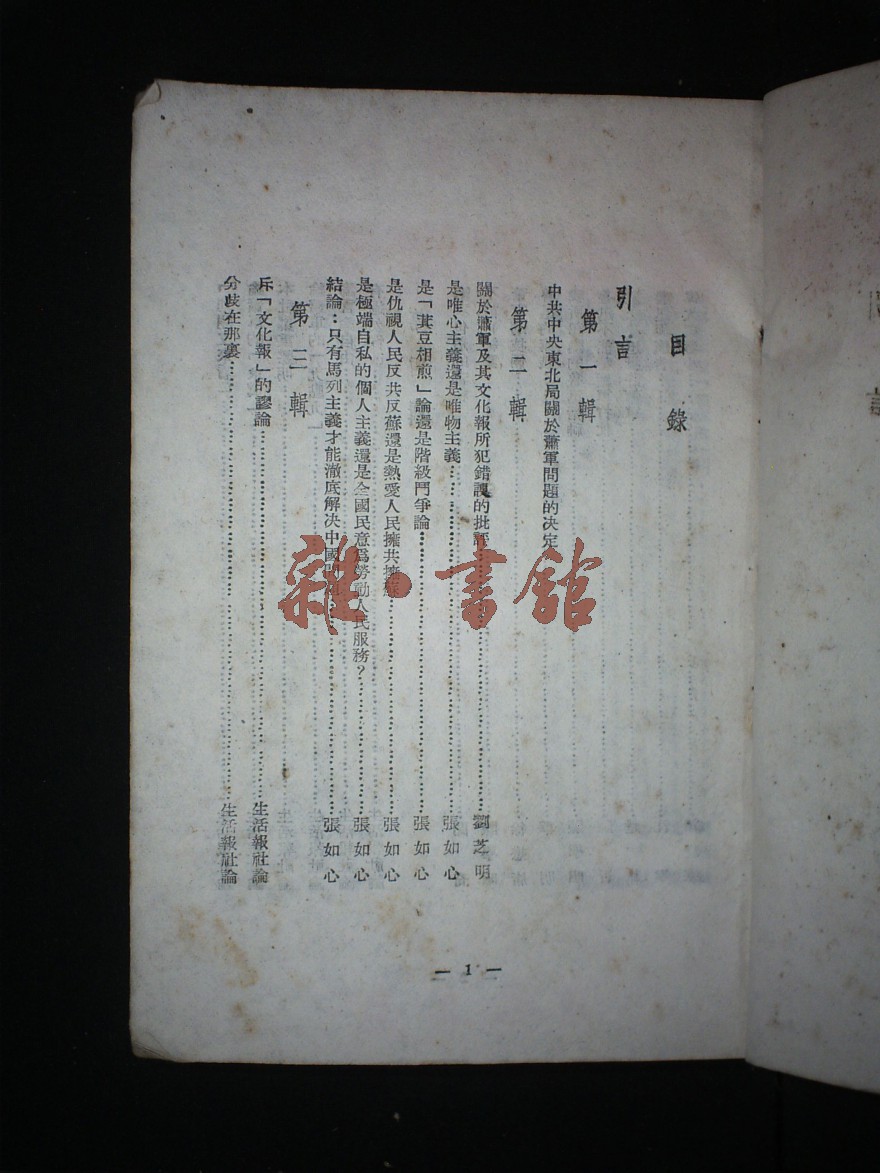 目錄
引言
第一輯
中共中央東北局關於蕭軍問題的决定
第二輯
關於蕭軍及其文化報所犯錯誤的批評……劉芝明
是唯心主義還是唯物主義……張如心
是「萁豆相煎」論還是階級鬥爭論……張如心
是仇視人民反共反蘇還是熱愛人民擁共擁蘇……張如心
是極端自私的個人主義還是全國民意爲勞動人民服務？……張如心
結論：只有馬列主義才能澈底解决中國問題……張如心
第三輯
斥「文化報」的謬論……生活報社論
分歧在那裏……生活報社論
— 1 —
雜·書館